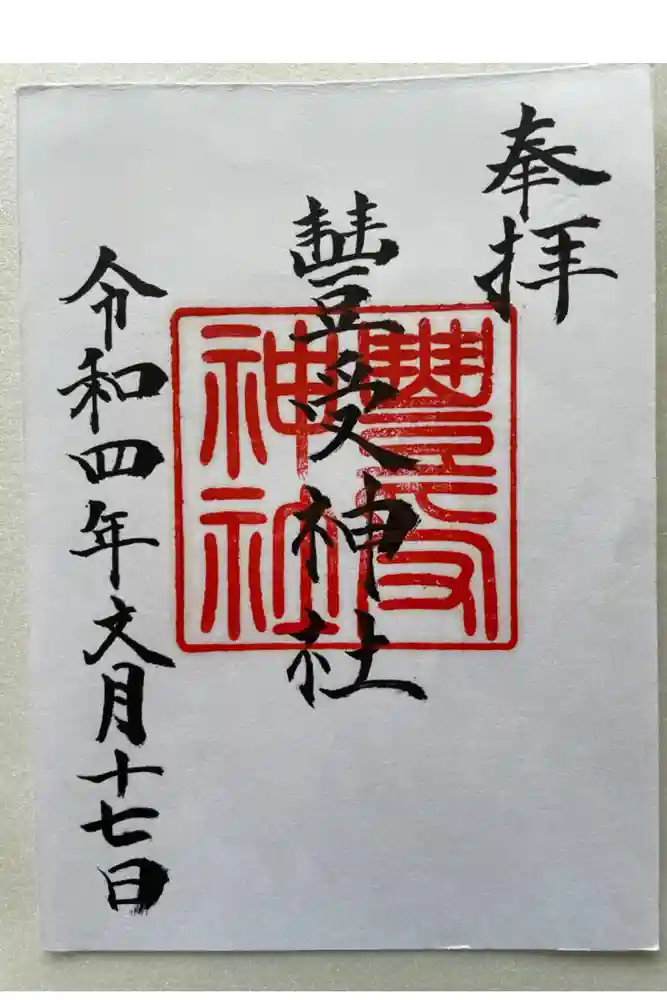 奉拝
豐受神社
豐受神社
令和四年文月十七日